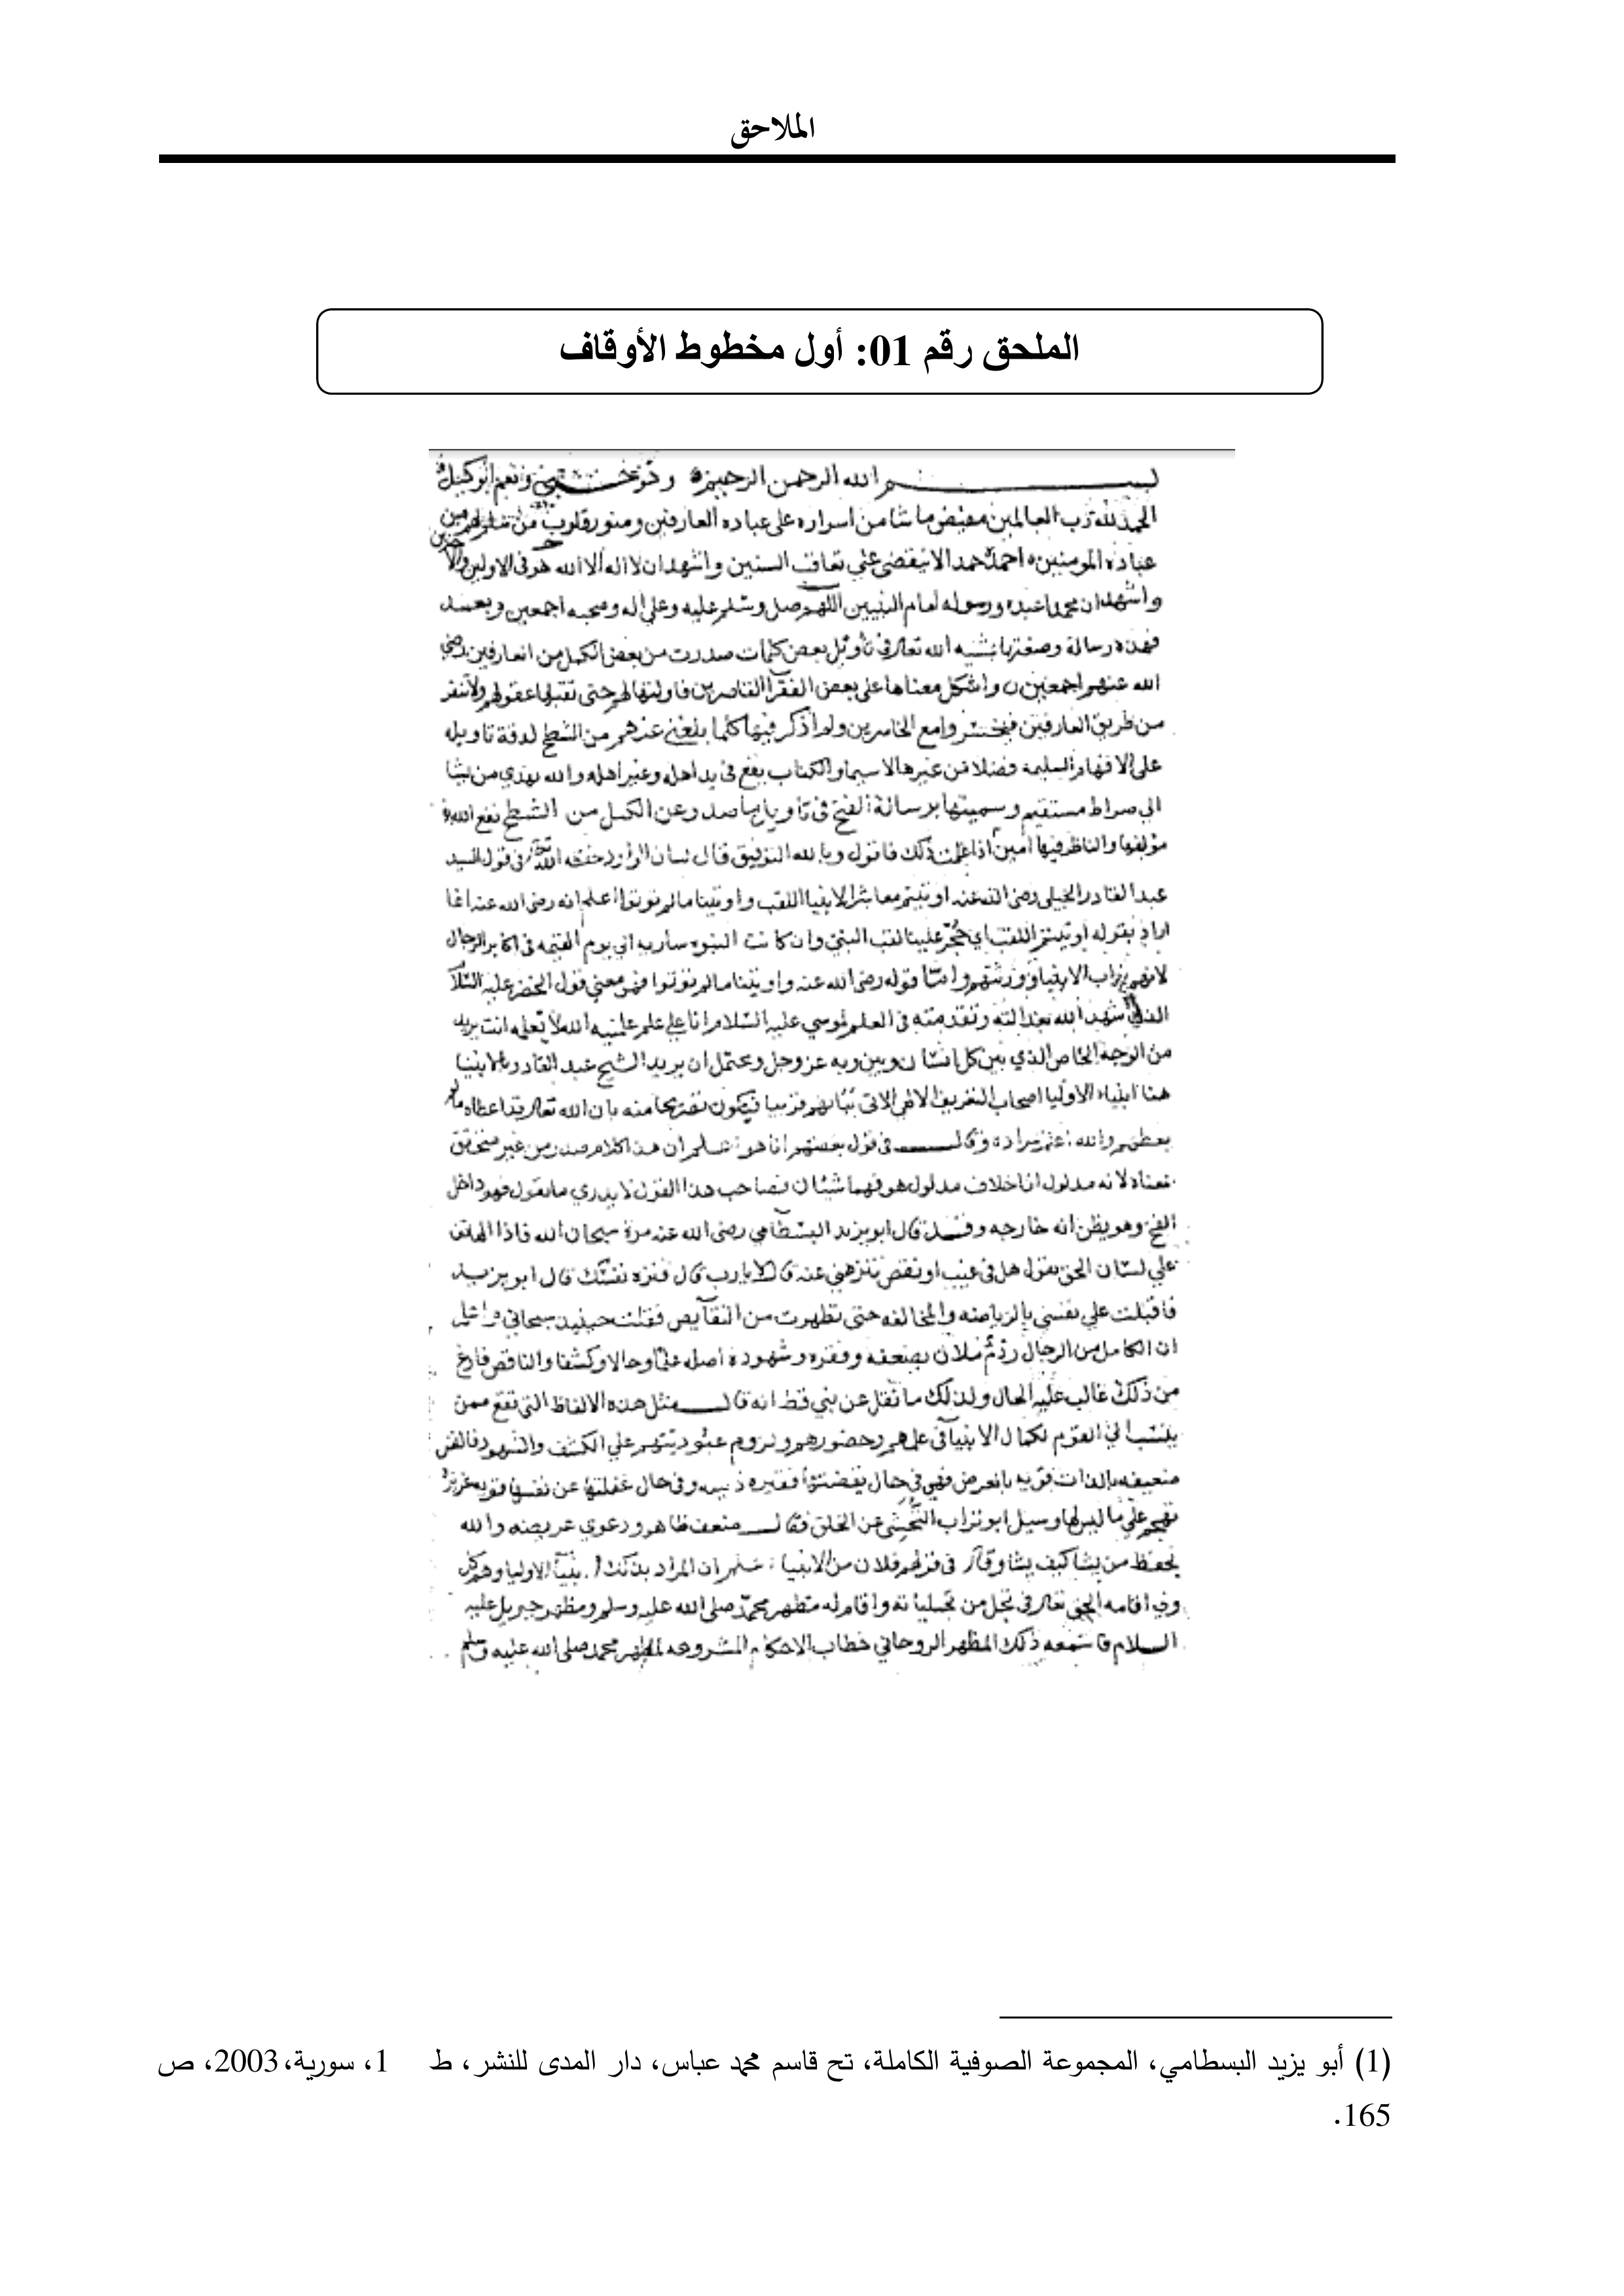 الملاحق
الملحق رقم 01: أول مخطوط الأوقاف
بسم الله الرحمن الرحيم وهو حسبي ونعم الوكيل
الحمد لله رب العالمين مفيض ما شا من اسراره على عباده العارفين ومنور قلوب من شا من
عباده المومنين احمده حمدا لا ينقضي على تعاقب السنين واشهد ان لا اله الا الله هو في الاولين والاخرين
واشهد ان محمدا عبده ورسوله امام النبيين اللهم صل وسلم عليه وعلى اله وصحبه اجمعين وبعد
فهذه رسالة وضعتها بمشية الله تعالى في تأويل بعض كلمات صدرت من بعض الكمل من العارفين رضي
الله عنهم اجمعين واشكل معناها على بعض الفقرا القاصرين فاولتها لهم حتى تقبلها عقولهم ولا تنفر
من طريق العارفين فيخسروا مع الخاسرين ولم اذكر فيها كلما بلغني عنهم من الشطح لدقة تاويله
على الافهام السليمة فضلا عن غيرها لا سيما والكتاب يقع في يد اهله وغير اهله والله يهدي من يشا
الى صراط مستقيم وسميتها برسالة الفتح في تأويل ما صدر عن الكمل من الشطح نفع الله بها
مؤلفها والناظر فيها امين اذا علمت ذلك فاقول وبالله التوفيق قال لسان في قول السيد
عبد القادر الجيلي رضي الله عنه اوتيتم معاشر الانبيا اللقب واوتينا ما لم توتوا اعلم انه رضي الله عنه انما
اراد بقوله اوتيتم اللقب اي حجر علينا لقب النبي وان كانت النبوه سارية الى يوم القيمه في اكابر الرجال
لانهم نواب الانبيا وورثتهم واما قوله رضي الله عنه واوتينا ما لم توتوا فهو معنى قول الخضر عليه السلام
الذي شهد الله بعدالته وتقدمته في العلم لموسى عليه السلام انا على علم علمنيه الله لا تعلمه انت يريد
من الوجه الخاص الذي بين كل انسان وبين ربه عز وجل ويحتمل ان يريد الشيخ عبد القادر بالانبيا
هنا انبياء الاوليا اصحاب التعريف الالهي فيكون تصريحا منه بان الله تعالى قد اعطاه ما لم
يعطهم والله اعلم بمراده وقال في قول بعضهم انا هو اعلم ان هذا كلام صدر من غير متحقق
معناه لانه مدلول انا خلاف مدلول هو فهما شيئان فصاحب هذا القول لا يدري ما يقول فهو داخل
وهو يظن انه خارجه وقد قال ابو يزيد البسطامي رضي الله عنه مرة سبحان الله فاذا الهاتف
على لسان الحق يقول هل في عيب او نقص تنزهني عنه قال لا يارب قال فنزه نفسك قال ابو يزيد
فاقبلت على نفسي بالرياضه والمخالفه حتى تطهرت من النقايص فقلت حينيذ سبحاني واعلم
ان الكامل من الرجال ملان بضعفه وفقره وشهوده اصله علما وحالا وكشفا والناقص فارغ
من ذلك غالب عليه الحال ولذلك ما نقل عن نبي قط انه قال مثل هذه الالفاظ التي تقع ممن
ينتسب الى القوم لكمال الانبيا في علمهم وحضورهم ولزوم عبوديتهم على الكشف والشهود فالنفس
ضعيفه بالذات قويه بالعرض فهي في حال يقضتها فقيره ذليله وفي حال غفلتها عن نفسها قويه عزيزه
تهجم على ما ليس لها وسيل ابو تراب النخشبي عن الخلق فقال ضعف ظاهر ودعوى عريضه والله
يحفظ من يشا كيف يشا وقال في قولهم فلان من الانبيا اعلم ان المراد بذلك انبيا الاوليا وهم كل
ولي اقامه الحق تعالى في تجل من تجلياته واقام له مظهر محمد صلى الله عليه وسلم ومظهر جبريل عليه
السلام فاسمعه ذلك المظهر الروحاني خطاب الاحكام المشروعه لمظهر محمد صلى الله عليه وسلم
(1) أبو يزيد البسطامي، المجموعة الصوفية الكاملة، تح قاسم محمد عباس، دار المدى للنشر، ط 1، سورية، 2003، ص
165.